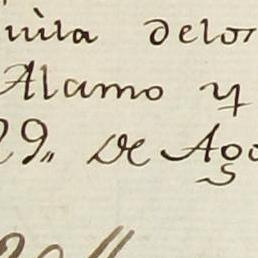 uila delos
Alamo y
29,, de Ago